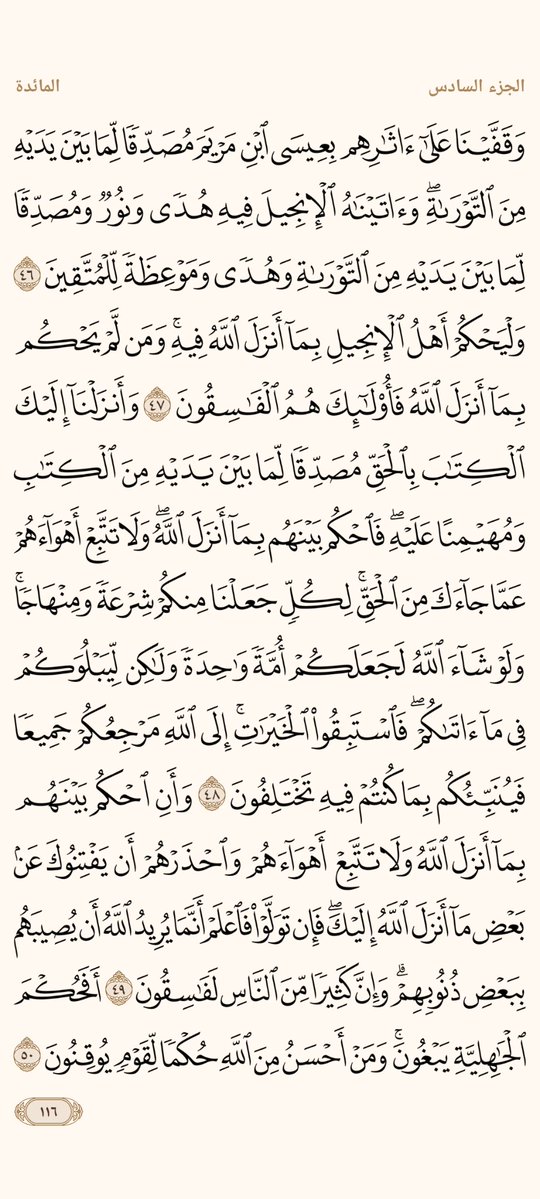 الجزء السادس
المائدة
وَقَفَّيْنَا عَلَىٰٓ ءَاثَٰرِهِم بِعِيسَى ٱبْنِ مَرْيَمَ مُصَدِّقًا لِّمَا بَيْنَ يَدَيْهِ
مِنَ ٱلتَّوْرَىٰةِۖ وَءَاتَيْنَٰهُ ٱلْإِنجِيلَ فِيهِ هُدًى وَنُورٌ وَمُصَدِّقًا
لِّمَا بَيْنَ يَدَيْهِ مِنَ ٱلتَّوْرَىٰةِ وَهُدًى وَمَوْعِظَةً لِّلْمُتَّقِينَ ٤٦
وَلْيَحْكُمْ أَهْلُ ٱلْإِنجِيلِ بِمَآ أَنزَلَ ٱللَّهُ فِيهِۚ وَمَن لَّمْ يَحْكُم
بِمَآ أَنزَلَ ٱللَّهُ فَأُو۟لَٰٓئِكَ هُمُ ٱلْفَٰسِقُونَ ٤٧ وَأَنزَلْنَآ إِلَيْكَ
ٱلْكِتَٰبَ بِٱلْحَقِّ مُصَدِّقًا لِّمَا بَيْنَ يَدَيْهِ مِنَ ٱلْكِتَٰبِ
وَمُهَيْمِنًا عَلَيْهِۖ فَٱحْكُم بَيْنَهُم بِمَآ أَنزَلَ ٱللَّهُۖ وَلَا تَتَّبِعْ أَهْوَآءَهُمْ
عَمَّا جَآءَكَ مِنَ ٱلْحَقِّۚ لِكُلٍّ جَعَلْنَا مِنكُمْ شِرْعَةً وَمِنْهَاجًاۚ
وَلَوْ شَآءَ ٱللَّهُ لَجَعَلَكُمْ أُمَّةً وَٰحِدَةً وَلَٰكِن لِّيَبْلُوَكُمْ
فِى مَآ ءَاتَىٰكُمْۖ فَٱسْتَبِقُوا۟ ٱلْخَيْرَٰتِۚ إِلَى ٱللَّهِ مَرْجِعُكُمْ جَمِيعًا
فَيُنَبِّئُكُم بِمَا كُنتُمْ فِيهِ تَخْتَلِفُونَ ٤٨ وَأَنِ ٱحْكُم بَيْنَهُم
بِمَآ أَنزَلَ ٱللَّهُ وَلَا تَتَّبِعْ أَهْوَآءَهُمْ وَٱحْذَرْهُمْ أَن يَفْتِنُوكَ عَنۢ
بَعْضِ مَآ أَنزَلَ ٱللَّهُ إِلَيْكَۖ فَإِن تَوَلَّوْا۟ فَٱعْلَمْ أَنَّمَا يُرِيدُ ٱللَّهُ أَن يُصِيبَهُم
بِبَعْضِ ذُنُوبِهِمْۗ وَإِنَّ كَثِيرًا مِّنَ ٱلنَّاسِ لَفَٰسِقُونَ ٤٩ أَفَحُكْمَ
ٱلْجَٰهِلِيَّةِ يَبْغُونَۚ وَمَنْ أَحْسَنُ مِنَ ٱللَّهِ حُكْمًا لِّقَوْمٍ يُوقِنُونَ ٥٠
١١٦